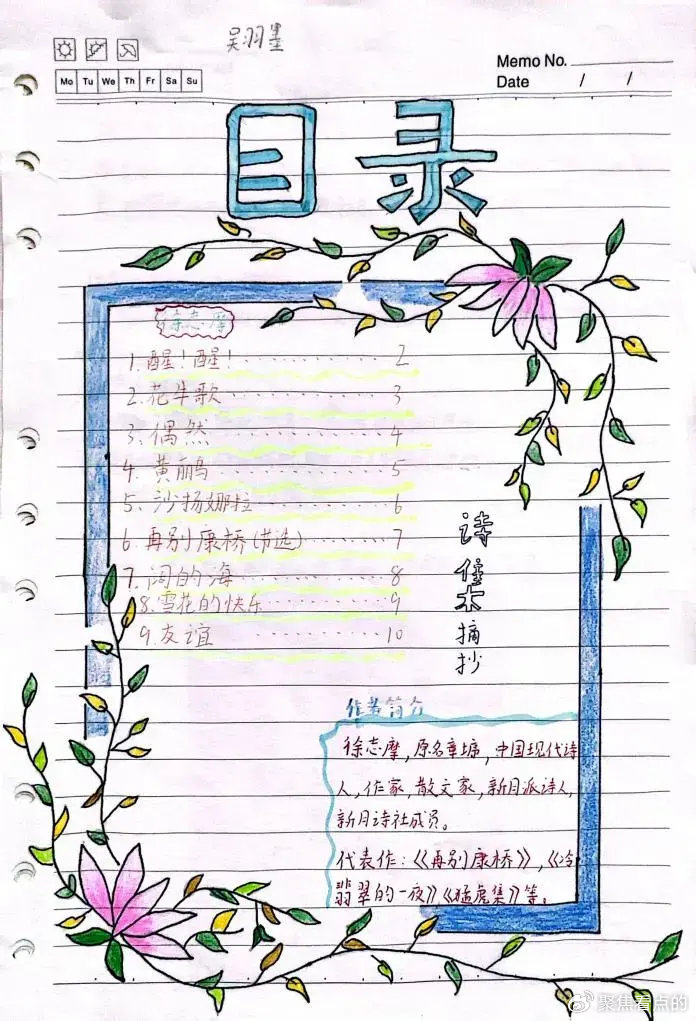 吴羽墨
Memo No.
Mo Tu We Th Fr Sa Su
Date / /
目录
徐志摩
1.醒!醒!············2
2.花牛歌············3
3.偶然············4
4.黄鹂············5
5.沙扬娜拉············6
6.再别康桥(节选)············7
7.阔的海············8
8.雪花的快乐············9
9.友谊············10
诗
佳
木
摘
抄
作者简介
徐志摩,原名章垿,中国现代诗
人,作家,散文家,新月派诗人,
新月诗社成员。
代表作:《再别康桥》,《冷
翡翠的一夜》《猛虎集》等。
@聚焦看点的